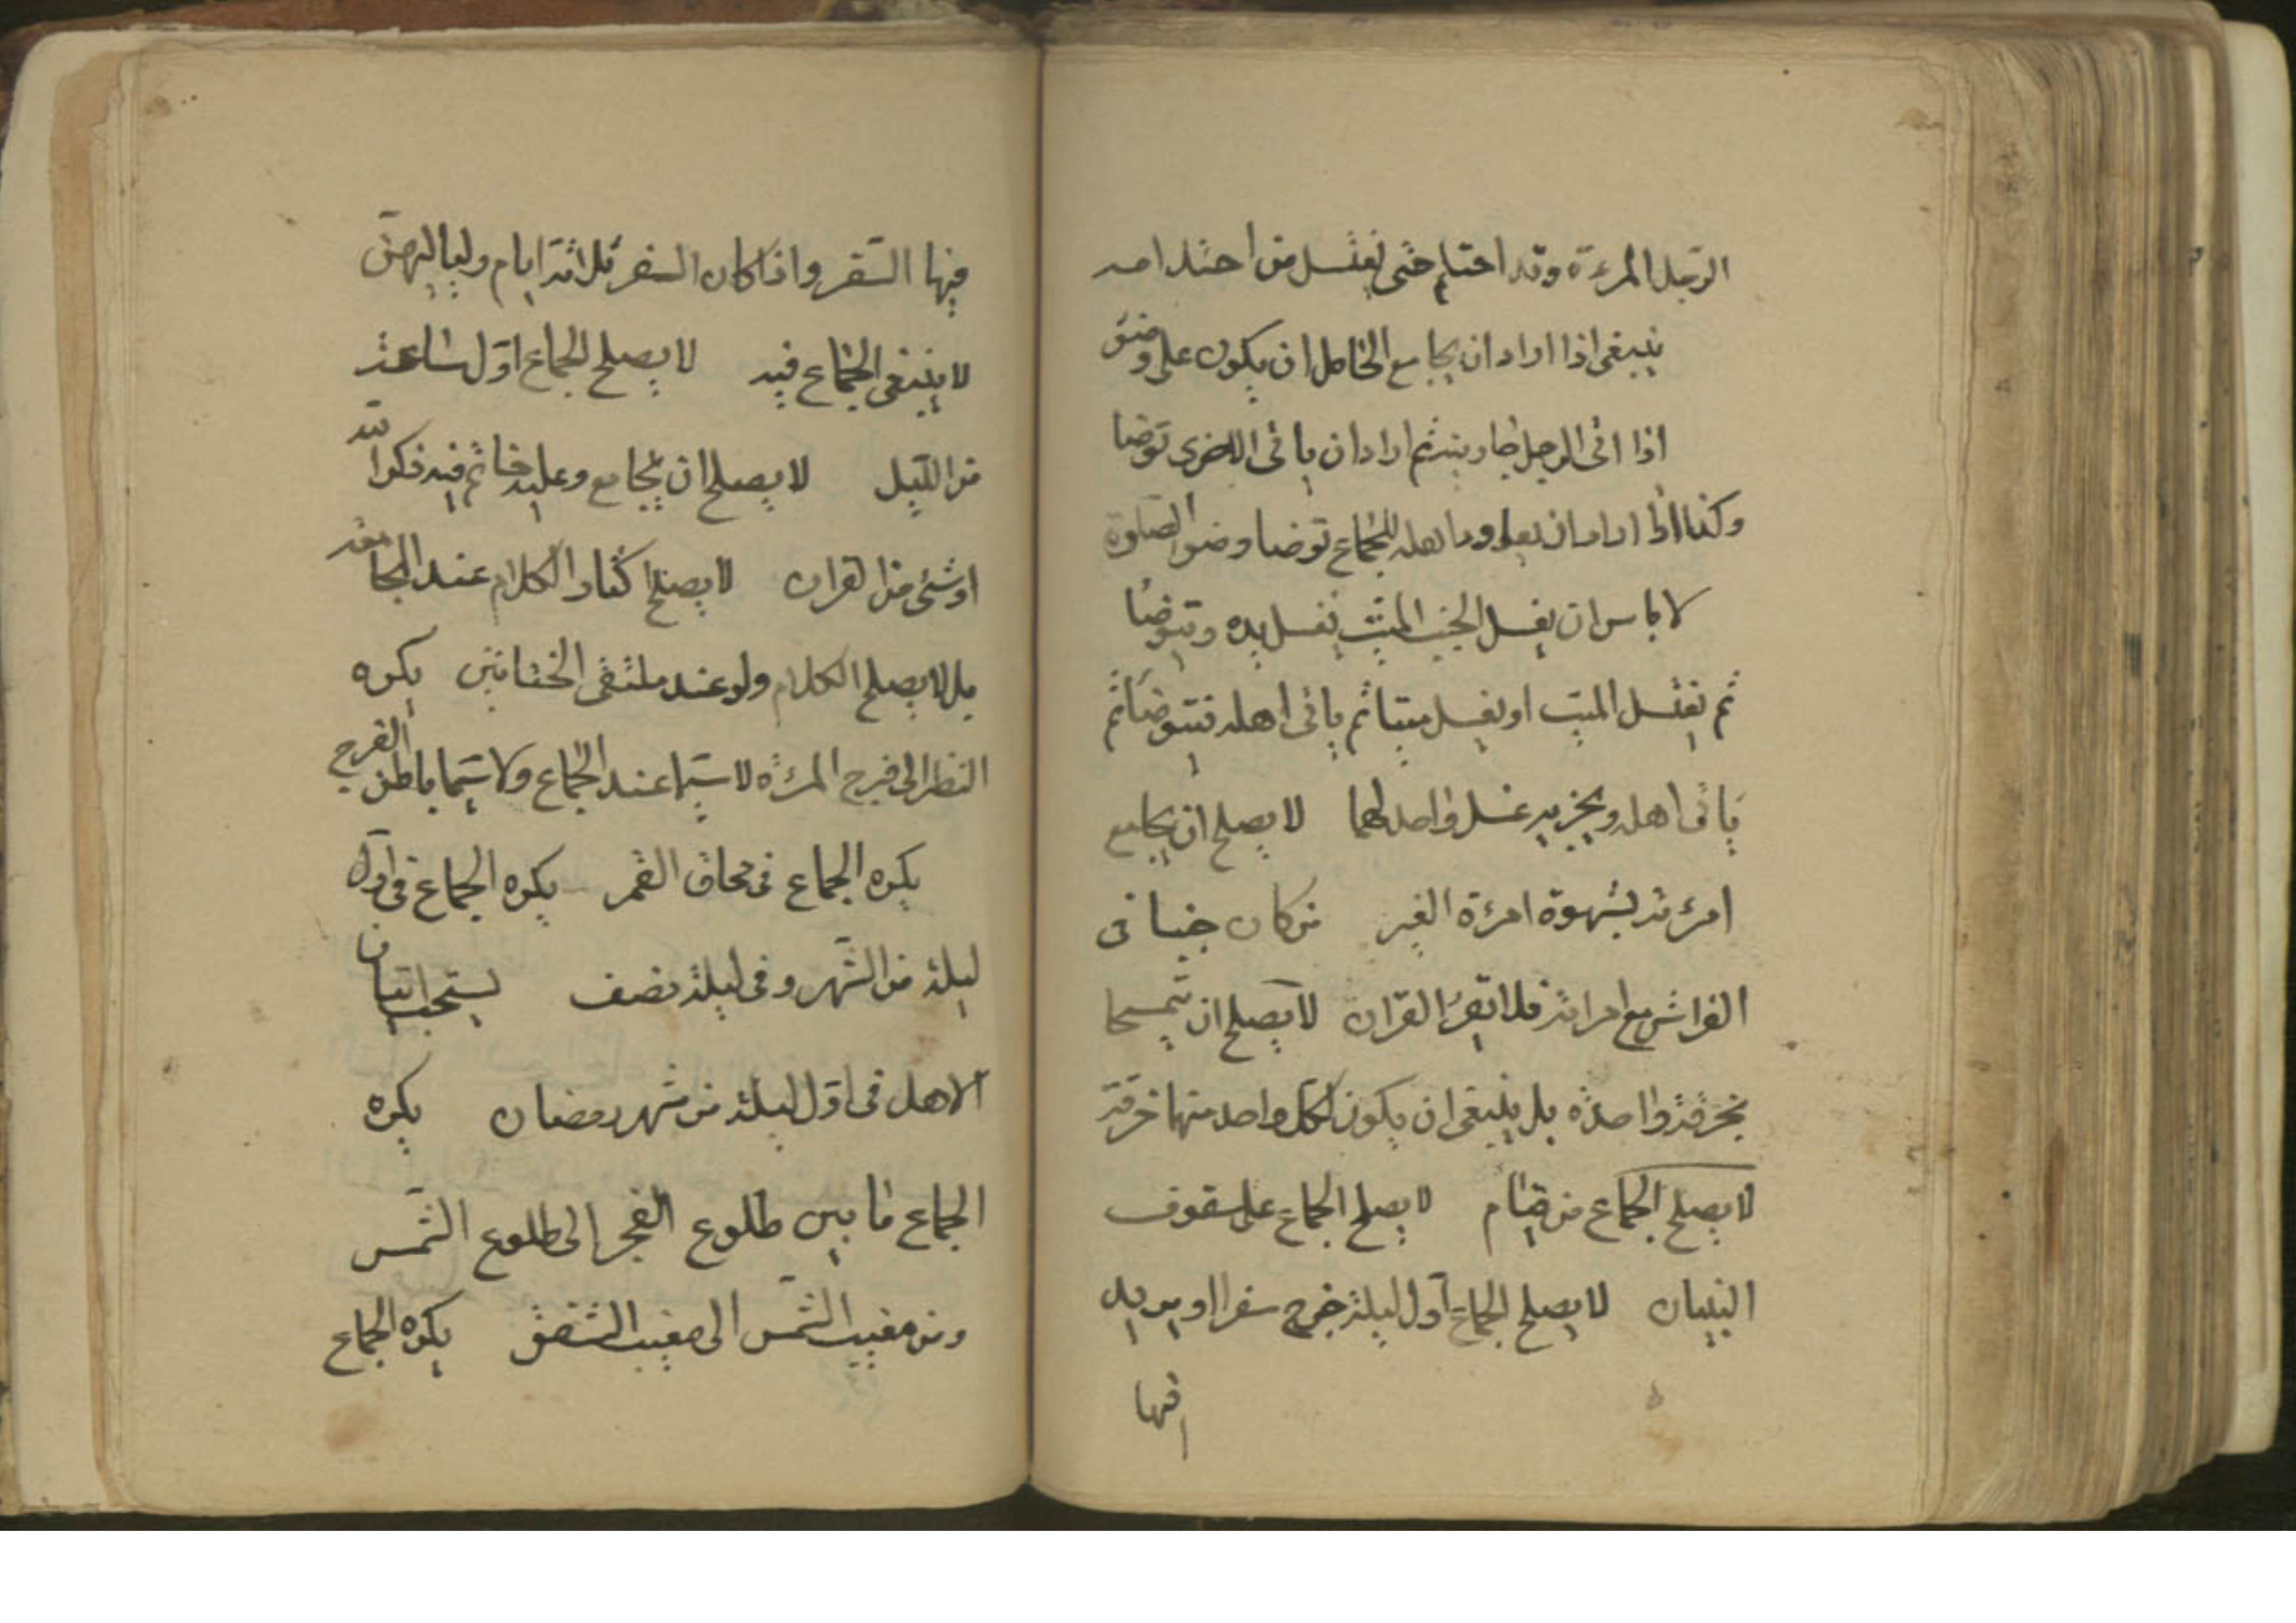 الرجل المرءة وقد احتلم حتى يغتسل من احتلامه
ينبغي اذا اراد ان يجامع الحامل ان يكون على وضوء
اذا اتى الرجل جاريته ثم اراد ان ياتى الاخرى توضا
وكذا اذا اراد ان يعاود اهله للجماع توضا وضوء الصلوة
لا باس ان يغسل الجنب الميت يغسل يده ويتوضا
ثم يغسل الميت او يغسل ميتا ثم ياتى اهله فيتوضا ثم
ياتى اهله ويجزيه غسل واحد لهما لا يصلح ان يجامع
امرءته بشهوة امرءة الغير من كان جنبا فى
الفراش مع امراته فلا يقرء القران لا يصلح ان يتمسحا
بخرقة واحدة بل ينبغى ان يكون لكل واحد منهما خرقة
لا يصلح الجماع من قيام لا يصلح الجماع على سقوف
البنيان لا يصلح الجماع اول ليلة خرج سفرا او يريد
فيها
فيها السفر واذا كان السفر ثلاثة ايام ولياليهن
لا ينبغى الجماع فيه لا يصلح الجماع اول ساعة
من الليل لا يصلح ان يجامع وعليه خاتم فيه ذكر الله
او شئ من القران لا يصلح اكثار الكلام عند المجامعة
بل لا يصلح الكلام ولو عند ملتقى الختانين يكره
النظر الى فرج المرءة لا سيما عند الجماع ولا سيما باطن الفرج
يكره الجماع فى محاق القمر يكره الجماع فى اول
ليلة من الشهر وفى ليلة نصف يستحب اتيان
الاهل فى اول ليلة من شهر رمضان يكره
الجماع ما بين طلوع الفجر الى طلوع الشمس
ومن مغيب الشمس الى مغيب الشفق يكره الجماع